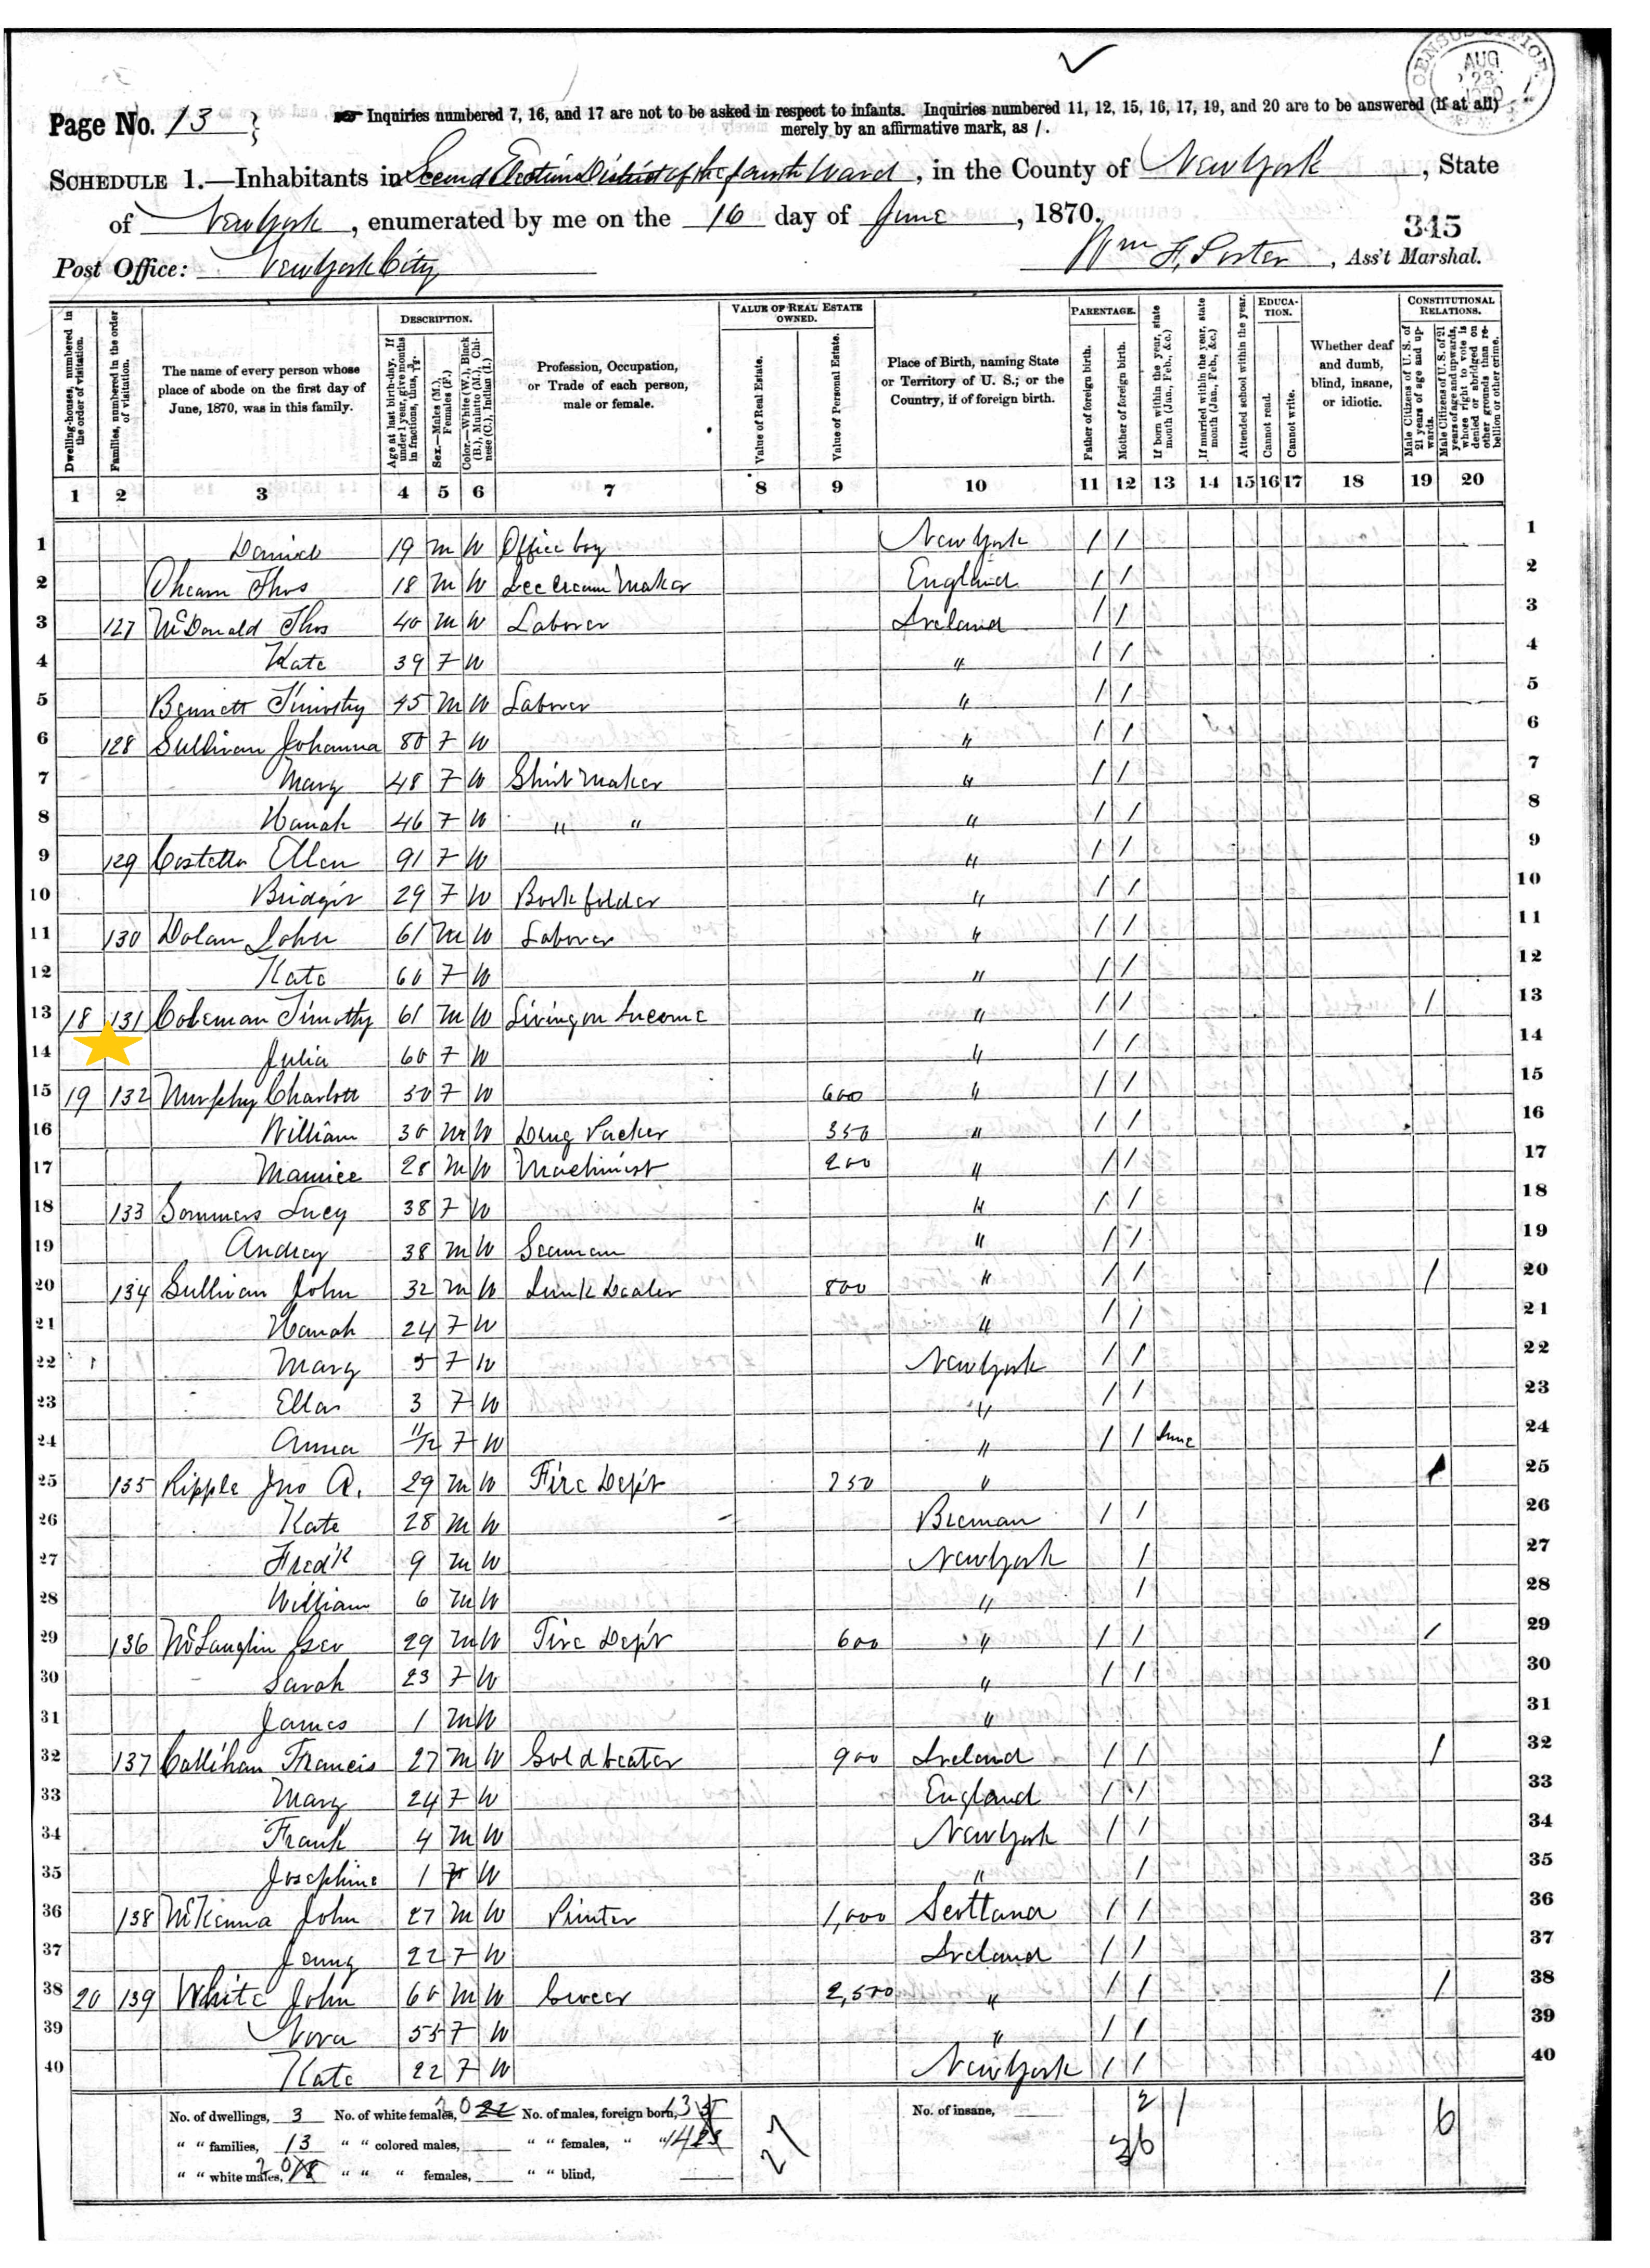 CENSUS OFFICE AUG 23 1870
Page No. 13 } Inquiries numbered 7, 16, and 17 are not to be asked in respect to infants. Inquiries numbered 11, 12, 15, 16, 17, 19, and 20 are to be answered (if at all)
merely by an affirmative mark, as /.
SCHEDULE 1.—Inhabitants in Second Election District of the fourth Ward, in the County of New York, State
of New York, enumerated by me on the 16 day of June, 1870.
345
Post Office: New York City Wm F. Porter, Ass't Marshal.
Dwelling-houses, numbered in the order of visitation.
Families, numbered in the order of visitation.
The name of every person whose place of abode on the first day of June, 1870, was in this family.
DESCRIPTION.
Age at last birth-day. If under 1 year, give months in fractions, thus, 3/12
Sex.—Males (M.), Females (F.)
Color.—White (W.), Black (B.), Mulatto (M.), Chinese (C.), Indian (I.)
Profession, Occupation, or Trade of each person, male or female.
VALUE OF REAL ESTATE OWNED.
Value of Real Estate.
Value of Personal Estate.
Place of Birth, naming State or Territory of U. S.; or the Country, if of foreign birth.
PARENTAGE.
Father of foreign birth.
Mother of foreign birth.
If born within the year, state month (Jan., Feb., &c.)
If married within the year, state month (Jan., Feb., &c.)
EDUCATION.
Attended school within the year.
Cannot read.
Cannot write.
Whether deaf and dumb, blind, insane, or idiotic.
CONSTITUTIONAL RELATIONS.
Male Citizens of U. S. of 21 years of age and upwards.
Male Citizens of U. S. of 21 years of age and upwards, whose right to vote is denied or abridged on other grounds than rebellion or other crime.
1 2 3 4 5 6 7 8 9 10 11 12 13 14 15 16 17 18 19 20
1 Daniel 19 M W Office boy New York / / 1
2 Ohearn Thos 18 M W Ice Cream Maker England / / 2
3 127 McDonald Thos 40 M W Laborer Ireland / / 3
4 Kate 39 F W " / / 4
5 Bennett Timothy 45 M W Laborer " / / 5
6 128 Sullivan Johanna 80 F W " / / 6
7 Mary 48 F W Shirt Maker " / / 7
8 Hanah 46 F W " " " / / 8
9 129 Costello Ellen 91 F W " / / 9
10 Bridget 29 F W Book folder " / / 10
11 130 Dolan John 61 M W Laborer " / / 11
12 Kate 60 F W " / / 12
13 18 131 Coleman Timothy 61 M W Living on Income " / / / 13
14 Julia 60 F W " / / 14
15 19 132 Murphy Charlott 50 F W 600 " / / 15
16 William 30 M W Drug Packer 350 " / / 16
17 Maurice 28 M W Machinist 200 " / / 17
18 133 Sommers Lucy 38 F W " / / 18
19 Andrey 38 M W Seaman " / / 19
20 134 Sullivan John 32 M W Junk Dealer 800 " / / / 20
21 Hanah 24 F W " / / 21
22 Mary 5 F W New York / / 22
23 Ellen 3 F W " / / 23
24 Anna 11/12 F W " / / June 24
25 135 Ripple Jno A. 29 M W Fire Dept 250 " / 25
26 Kate 28 M W Breman / / 26
27 Fredk 9 M W New York / 27
28 William 6 M W " / 28
29 136 McLauglin Geo 29 M W Fire Dept 600 " / / / 29
30 Sarah 23 F W " / / 30
31 James 1 M W " 31
32 137 Callihan Francis 27 M W Gold beater 900 Ireland / / / 32
33 Mary 24 F W England / / 33
34 Frank 4 M W New York / / 34
35 Josephine 1 F W " / 35
36 138 McKenna John 27 M W Printer 1,000 Scotland / / 36
37 Jenny 22 F W Ireland / / 37
38 20 139 White John 60 M W Grocer 2,500 " / / / 38
39 Nora 55 F W " / / 39
40 Kate 22 F W New York / / 40
No. of dwellings, 3 No. of white females, 20 22 No. of males, foreign born, 13 No. of insane, 2 / 6
" " families, 13 " " colored males, " " females, " 14 27 36
" " white males, 20 18 " " " females, " " blind,